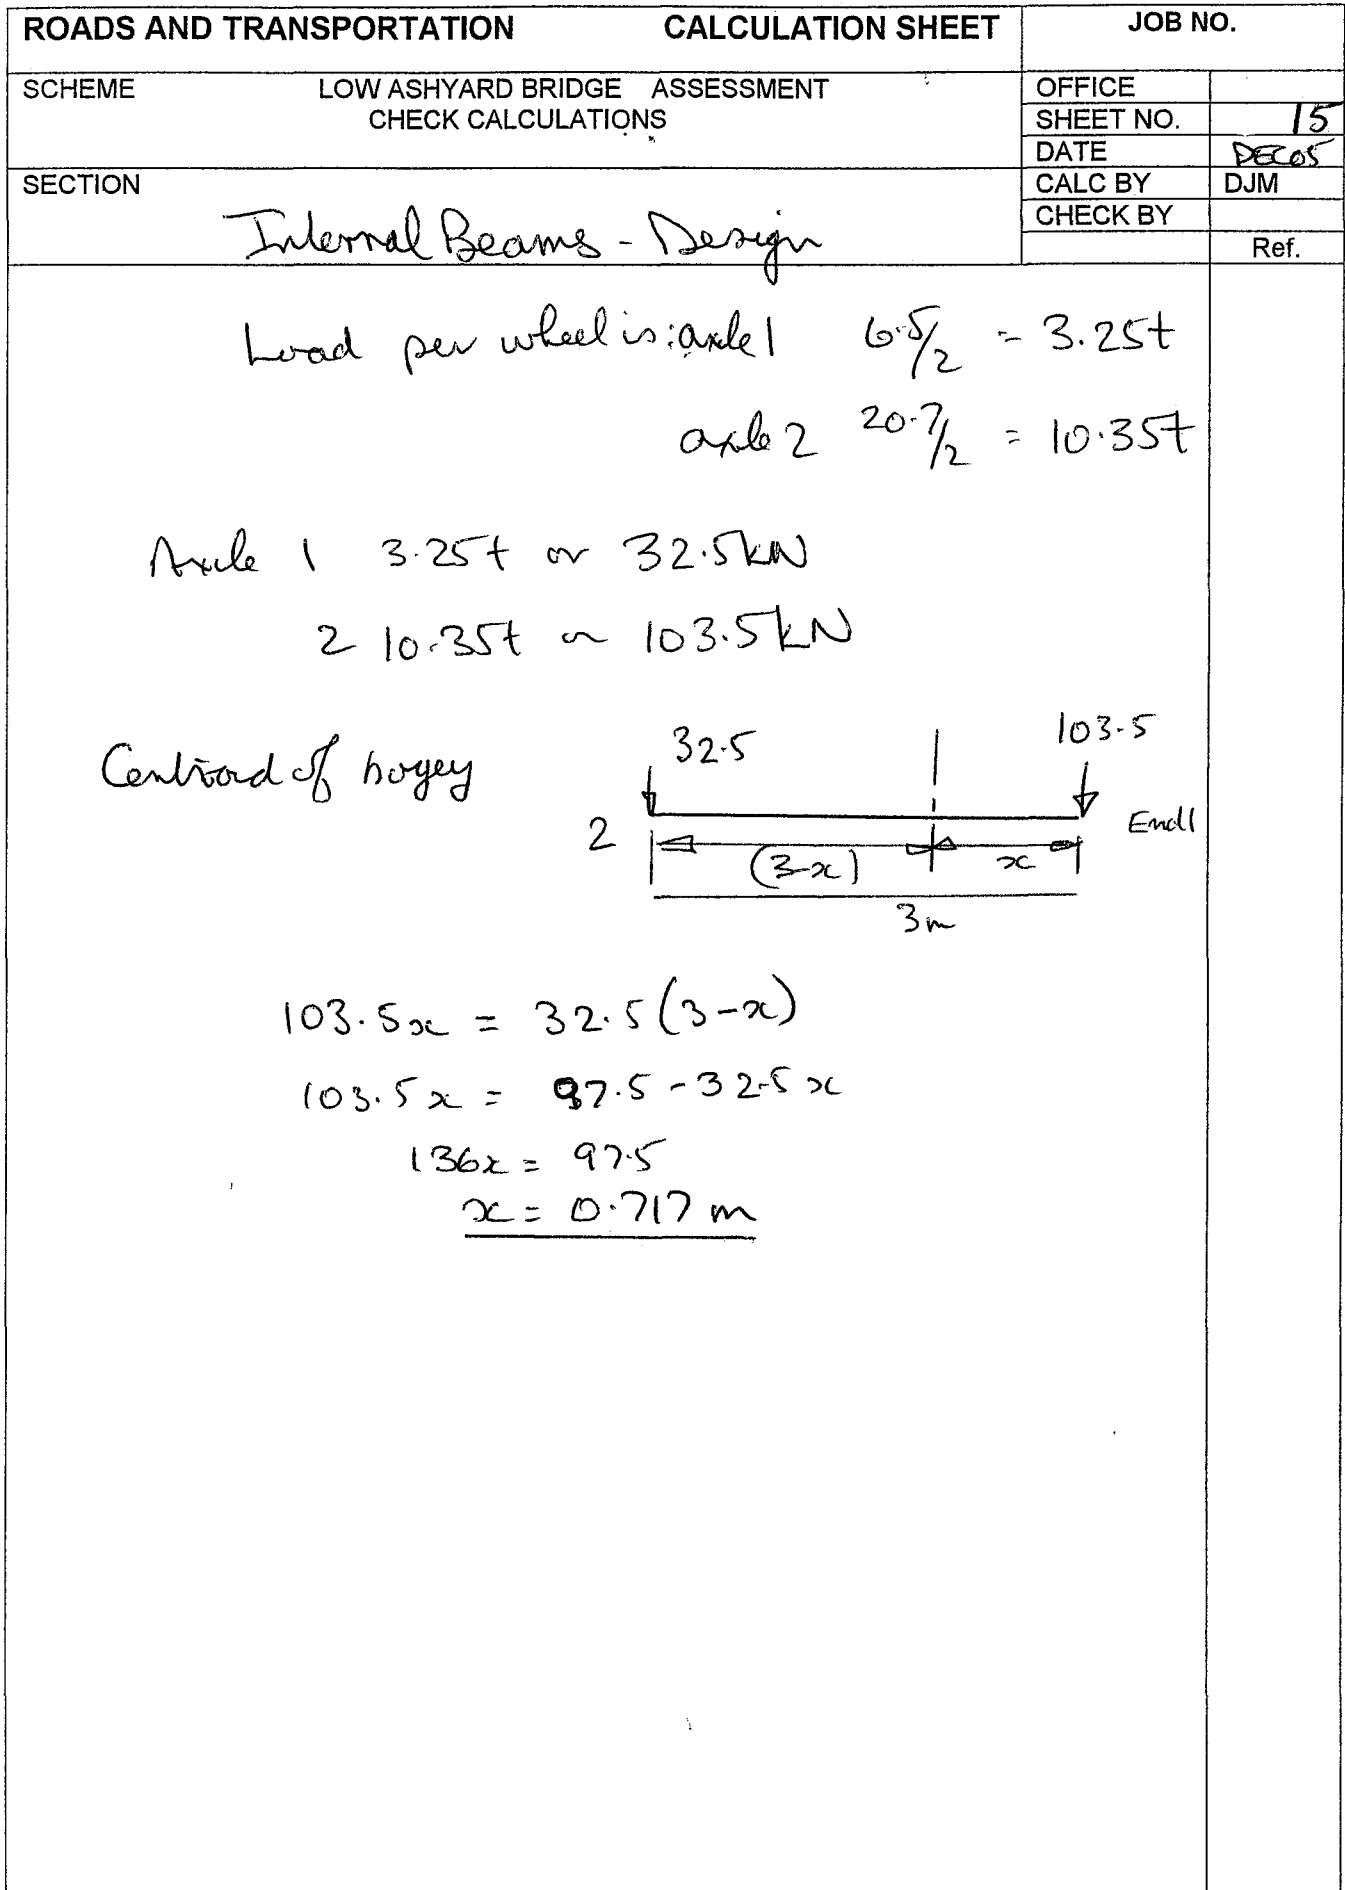 ROADS AND TRANSPORTATION CALCULATION SHEET JOB NO.
SCHEME LOW ASHYARD BRIDGE ASSESSMENT
CHECK CALCULATIONS
OFFICE
SHEET NO. 15
DATE DEC05
SECTION
CALC BY DJM
CHECK BY
Internal Beams - Design
Ref.
Load per wheel is: axle 1 6.5/2 = 3.25t
axle 2 20.7/2 = 10.35t
Axle 1 3.25t or 32.5kN
2 10.35t or 103.5kN
Centroid of bogey
32.5
103.5
2
End1
(3-x) x
3m
103.5x = 32.5(3-x)
103.5x = 97.5 - 32.5x
136x = 97.5
x = 0.717 m